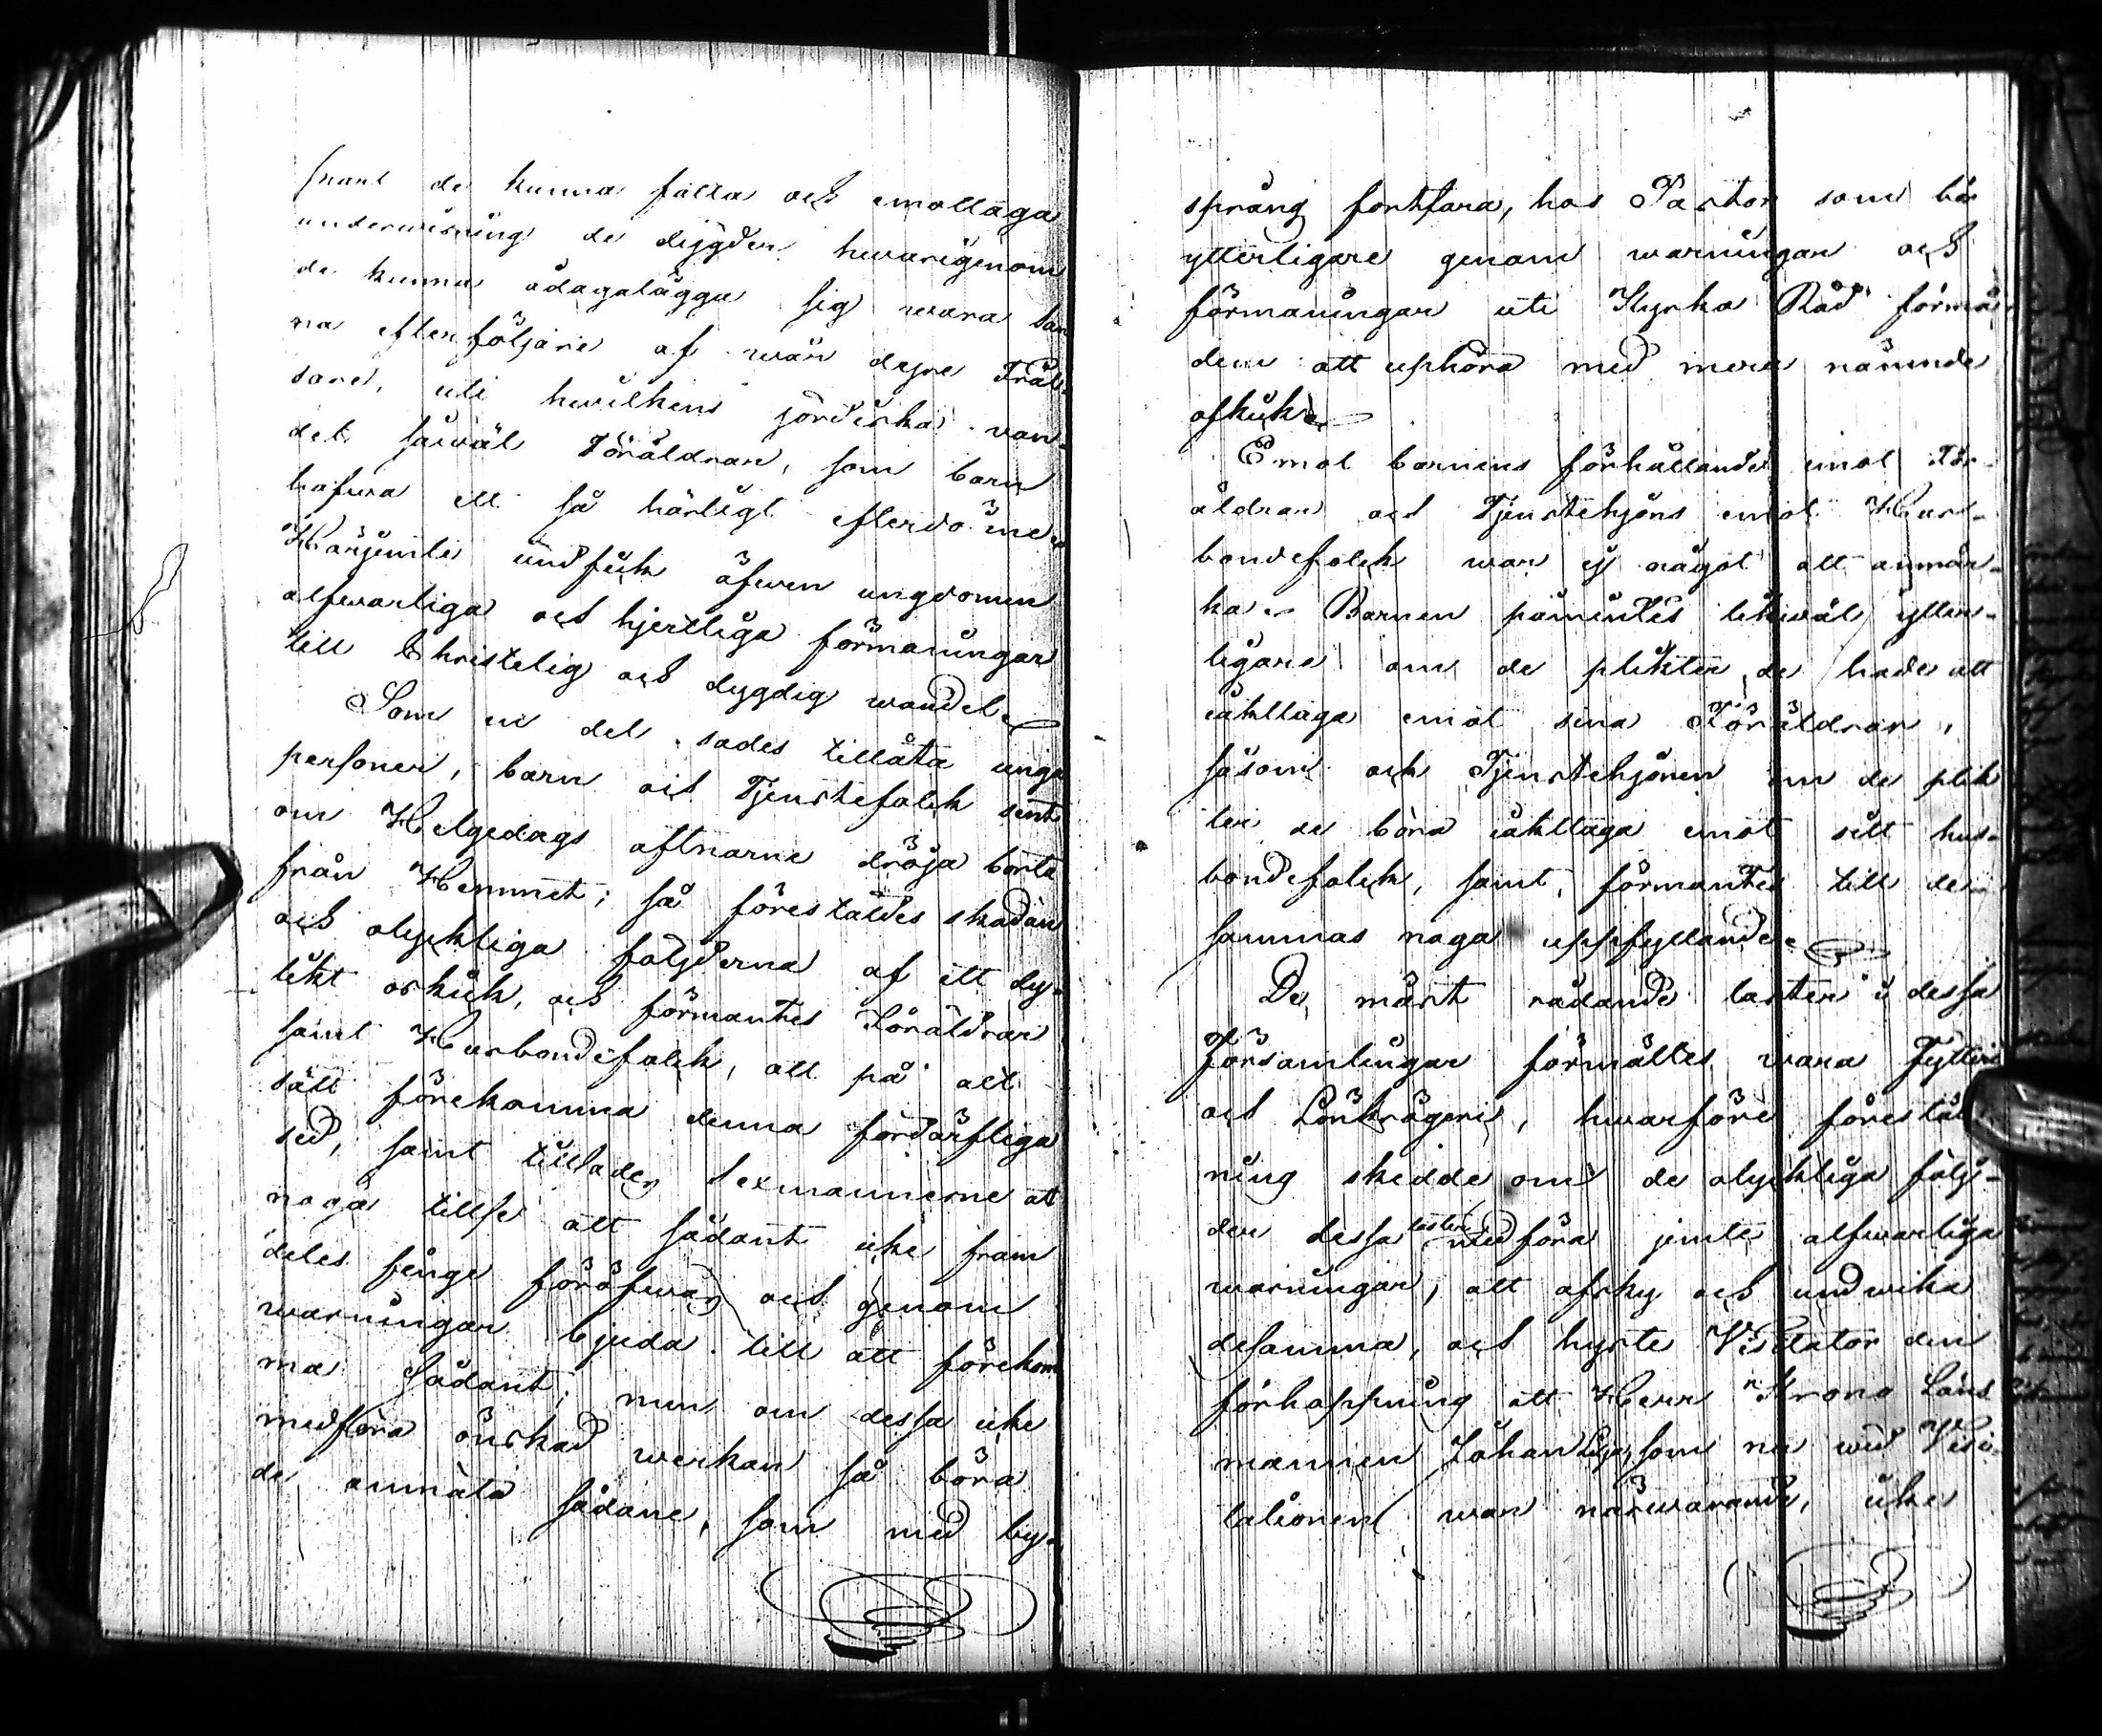 snart de kunna fatta och emottaga
underwisning de dygder hwarigenom
de kunna ådagalägga sig wara San
na efterföljare af wår dyre Fräl-
sare, uti hwilkens jordiska van-
del såwäl Föräldrar, som barn
hafwa ett så härligt efterdöme.
Härjemte undfick äfwen ungdomen
alfwarliga och hjertliga förmaningar
till Christelig och dygdig wandel.
Som en del sades tillåta unga
personer, barn och Tjenstefolck sent
om Helgedags aftnarne dröja borta
från Hemmet; så förestäldes skadan
och olyckliga fölgderna af ett dy-
likt oskick, och förmantes Föräldrar
samt Husbondefolck, att på alt
sätt förekomma denna fördärfliga
sed, samt tillsades Sexmännerne att
noga tillse att sådant icke fram
deles finge föröfwas och genom
warningar bjuda till att förekom
ma Sådant; men om dessa icke
medföra önskad werkan så böra
de anmäla sådane, som med by-
språng fortfara, hos Pastor som bör
ytterligare genom warningar och
förmaningar uti Kyrko Råd förmå
dem att uphöra med mera nämnde
oskick.
Emot barnens förhållande emot För-
äldrar och Tjenstehjons emot Hus-
bondefolck war ej något att anmär-
ka. Barnen påmintes likwäl ytter-
ligare om de plikter de hade att
iakttaga emot sina Föräldrar,
såsom och Tjenstehjonen om de plik
ter de böra iakttaga emot sitt hus-
bondefolck, samt förmantes till de-
sammas noga uppfyllande.
De mäst rådande laster i dessa
Församlingar förmältes wara Fylleri
och Lönkrögeri, hwarföre förestäl
ning skedde om de olyckliga följ-
der dessa laster medföra jemte alfwarliga
warningar, att afsky och undwika
desamma, och hyste Visitator den
förhoppning att Herr Krono Läns
mannen Johan som nu wid Visi-
tationen war närwarande, icke